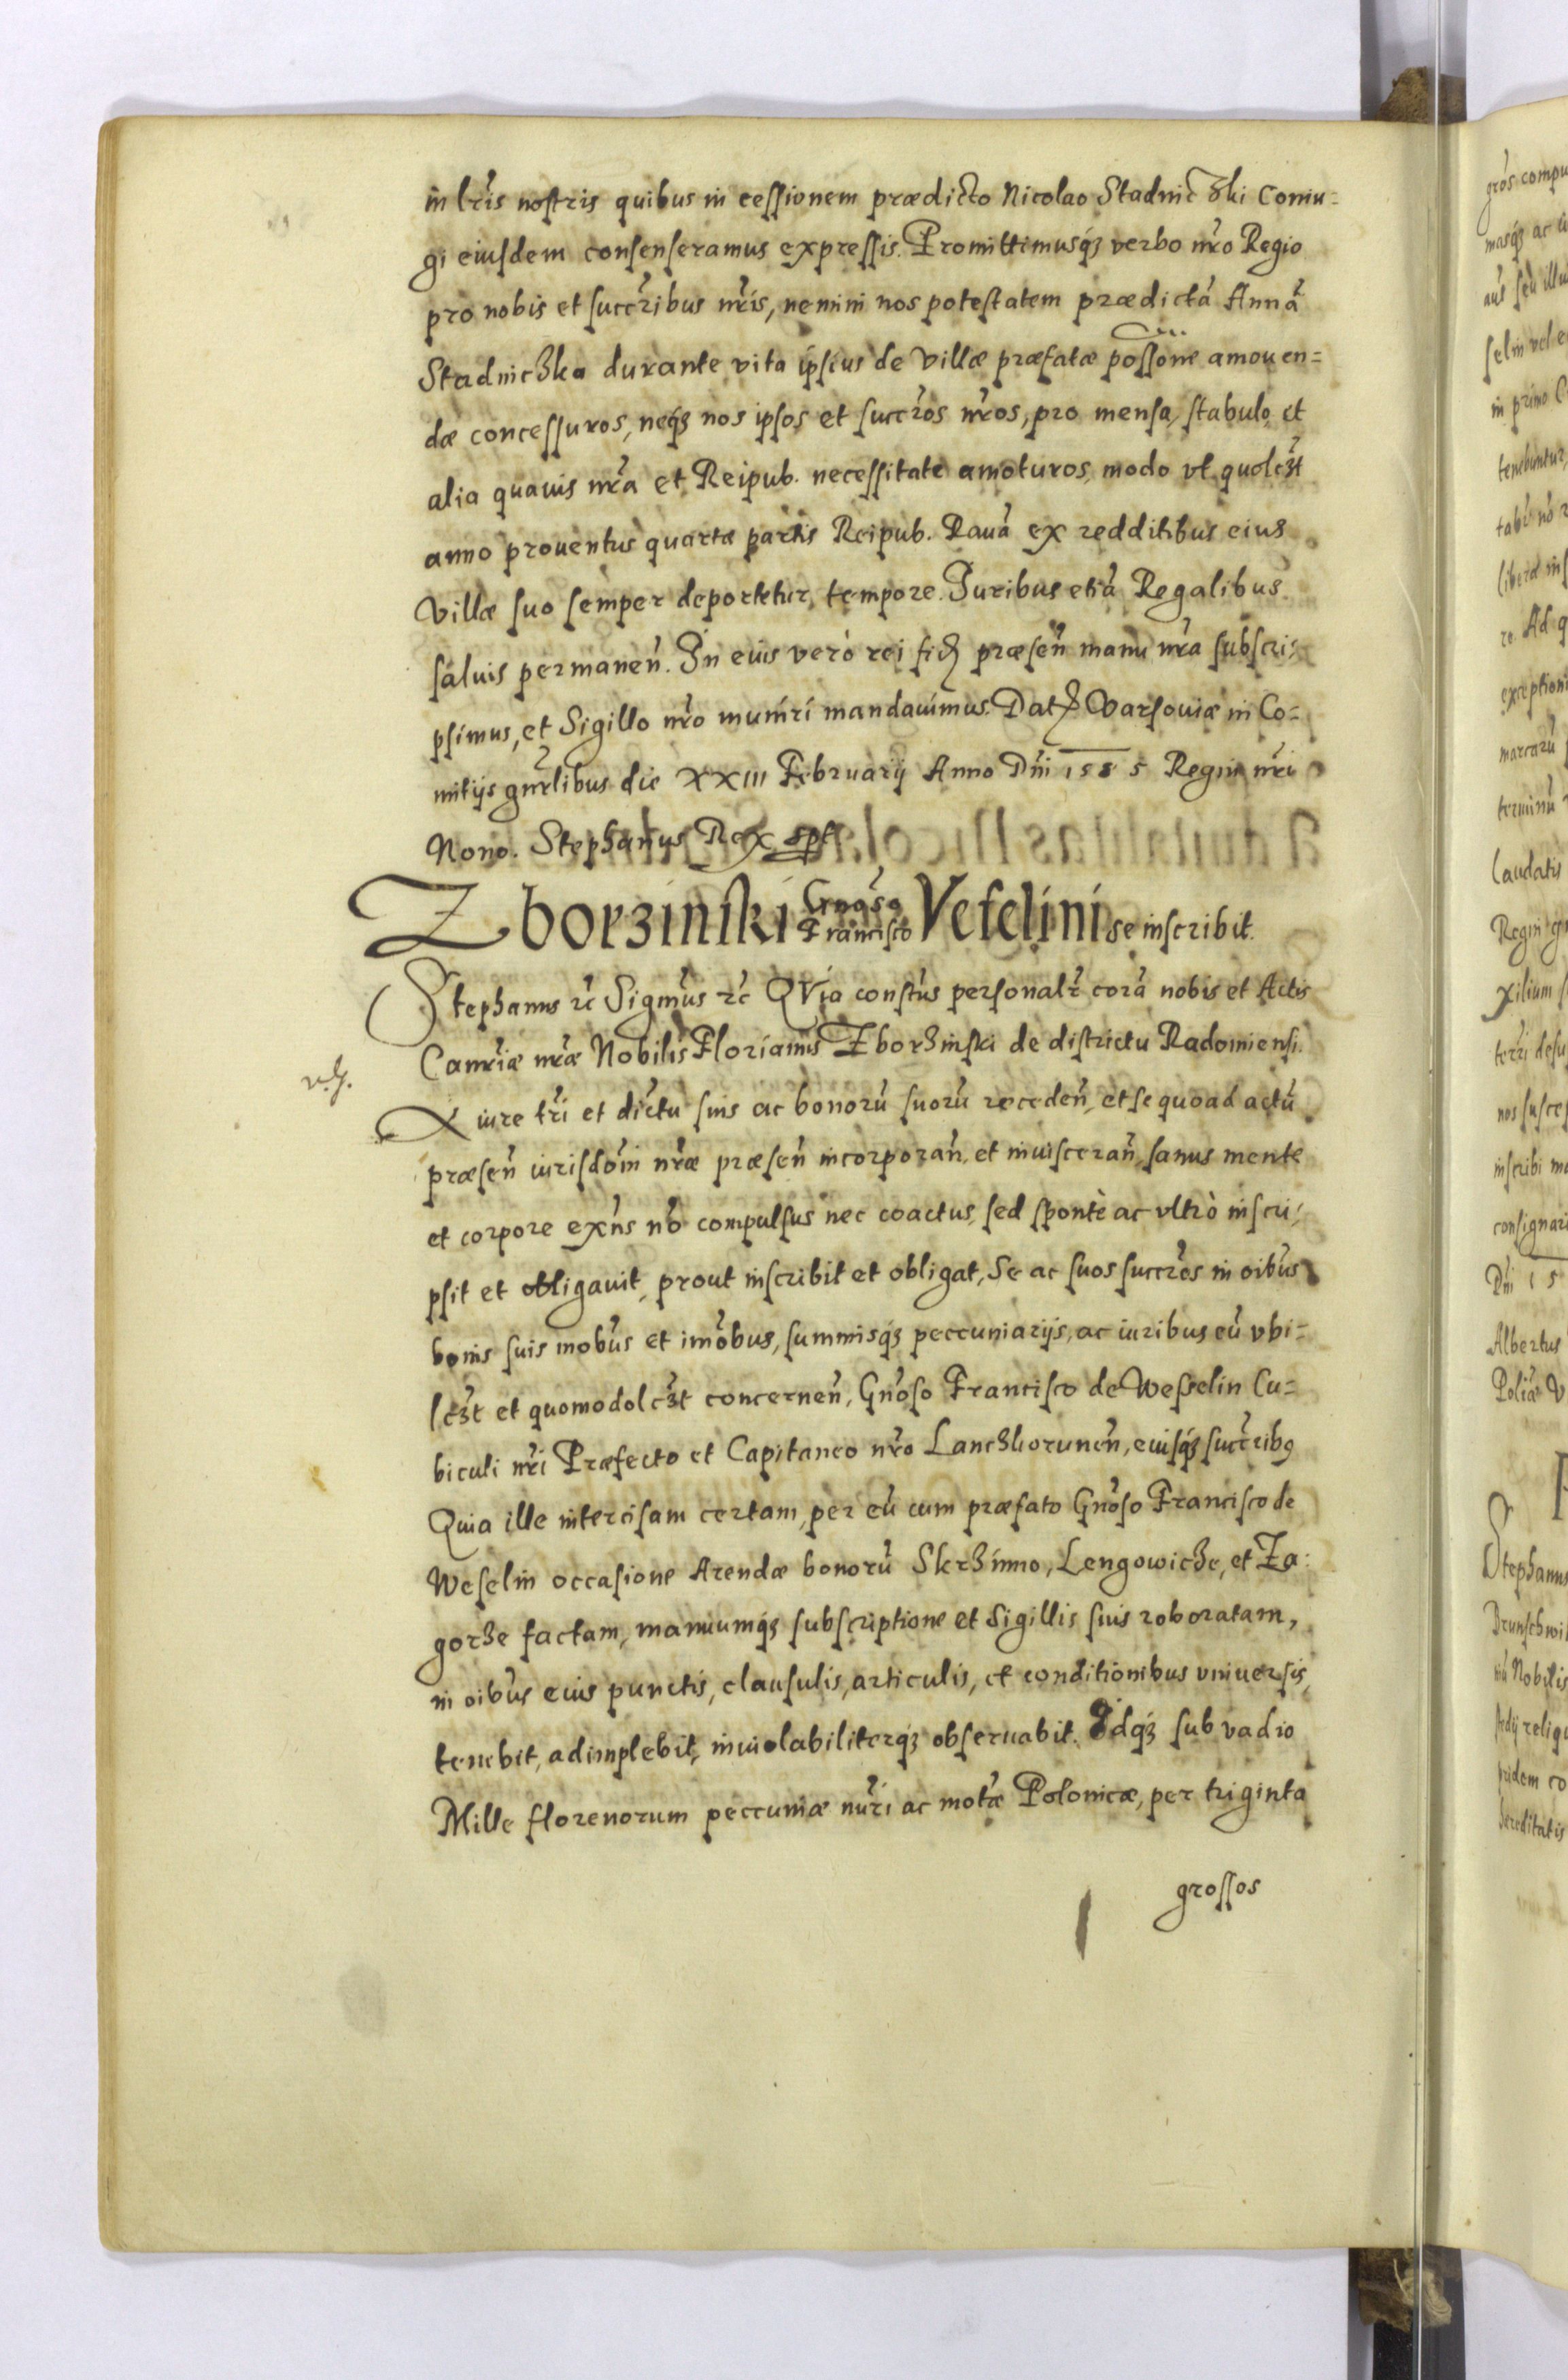 in lr̃is nostris quibus in cessionem prædicto Nicolao Stadniczki Coniu=
gi eiusdem consenseramus expressis. Promittimusq́ȝ verbo nr̃o Regio
pro nobis et succr̃ibus nr̃is, nemini nos potestatem prædictã Annã
Stadniczka durante vita ipsius de villæ præfatæ possone amouen=
dæ concessuros, neq́ȝ nos ipsos et succr̃os nr̃os, pro mensa, stabulo, et
alia quauis nr̃a et Reipub. necessitate amoturos, modo vt quolcȝ̃t
anno prouentus quartæ partis Reipub. Rauã ex redditibus eius
Villæ suo semper deportetur tempore. Iuribus etiã Regalibus
saluis permanen̄. In euis verò rei fid̃ præsen̄ manu nr̃a subscri:
psimus, et Sigillo nr̃o muniri mandauimus. Dat̃ Varsouiæ in Co=
mitijs gnr̃libus die XXIII Februarij Anno Dn̄i 1585 Regni nr̃i
Nono. Stephanus Rex spt
Zborzinski Gnoso Francisco Veselini se inscribit.
Stephanus rc̃ Sigm̃us rc̃ QVia const̃us personalr̃ corã nobis et Actis
Canr̃iæ nr̃æ Nobilis Florianus Zborzinski de districtu Radomiensi.
X iure tr̃i et dictu suis ac bonorũ suorũ receden̄, et se quoad actũ
præsen̄ iurisdoñi nr̃æ præsen̄ incorporan̄, et inuisceran̄, sanus mente
et corpore exñs nõ compulsus nec coactus, sed spontè ac vltrò inscri:
psit et obligauit, prout inscribit et obligat, Se ac suos succr̃es in oib̃us
bonis suis mob̃us et imõbus, summisq́ȝ peccuniarijs, ac iuribus eũ vbi=
lcȝ̃t et quomodolcȝ̃t concernen̄, Gñoso Francisco de Wesselin Cu=
biculi nr̃i Præfecto et Capitaneo nr̃o Lanczkorunen̄, euisq́ȝ succr̃ib9
Quia ille intercisam certam, per eũ cum præfato Gñoso Francisco de
Weselin occasione Arendæ bonorũ Skrzinno, Lengowicze, et Za:
gorze factam, manuumq́ȝ subscriptione et Sigillis suis roboratam,
in oib̃us euis punctis, clausulis, articulis, et conditionibus vniuersis,
tenebit, adimplebit, inuiolabiliterq́ȝ obseruabit. Idq́ȝ sub vadio
Mille florenorum peccuniæ nũri ac motæ̃ Polonicæ, per triginta
grossos